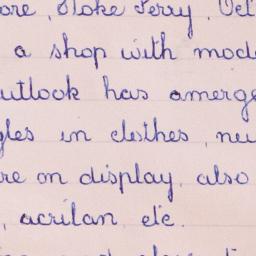 ore, Stoke Ferry, Oct
a shop with mod
utlook has amerge
gles in clothes, new
re on display, also
, acrilan etc.